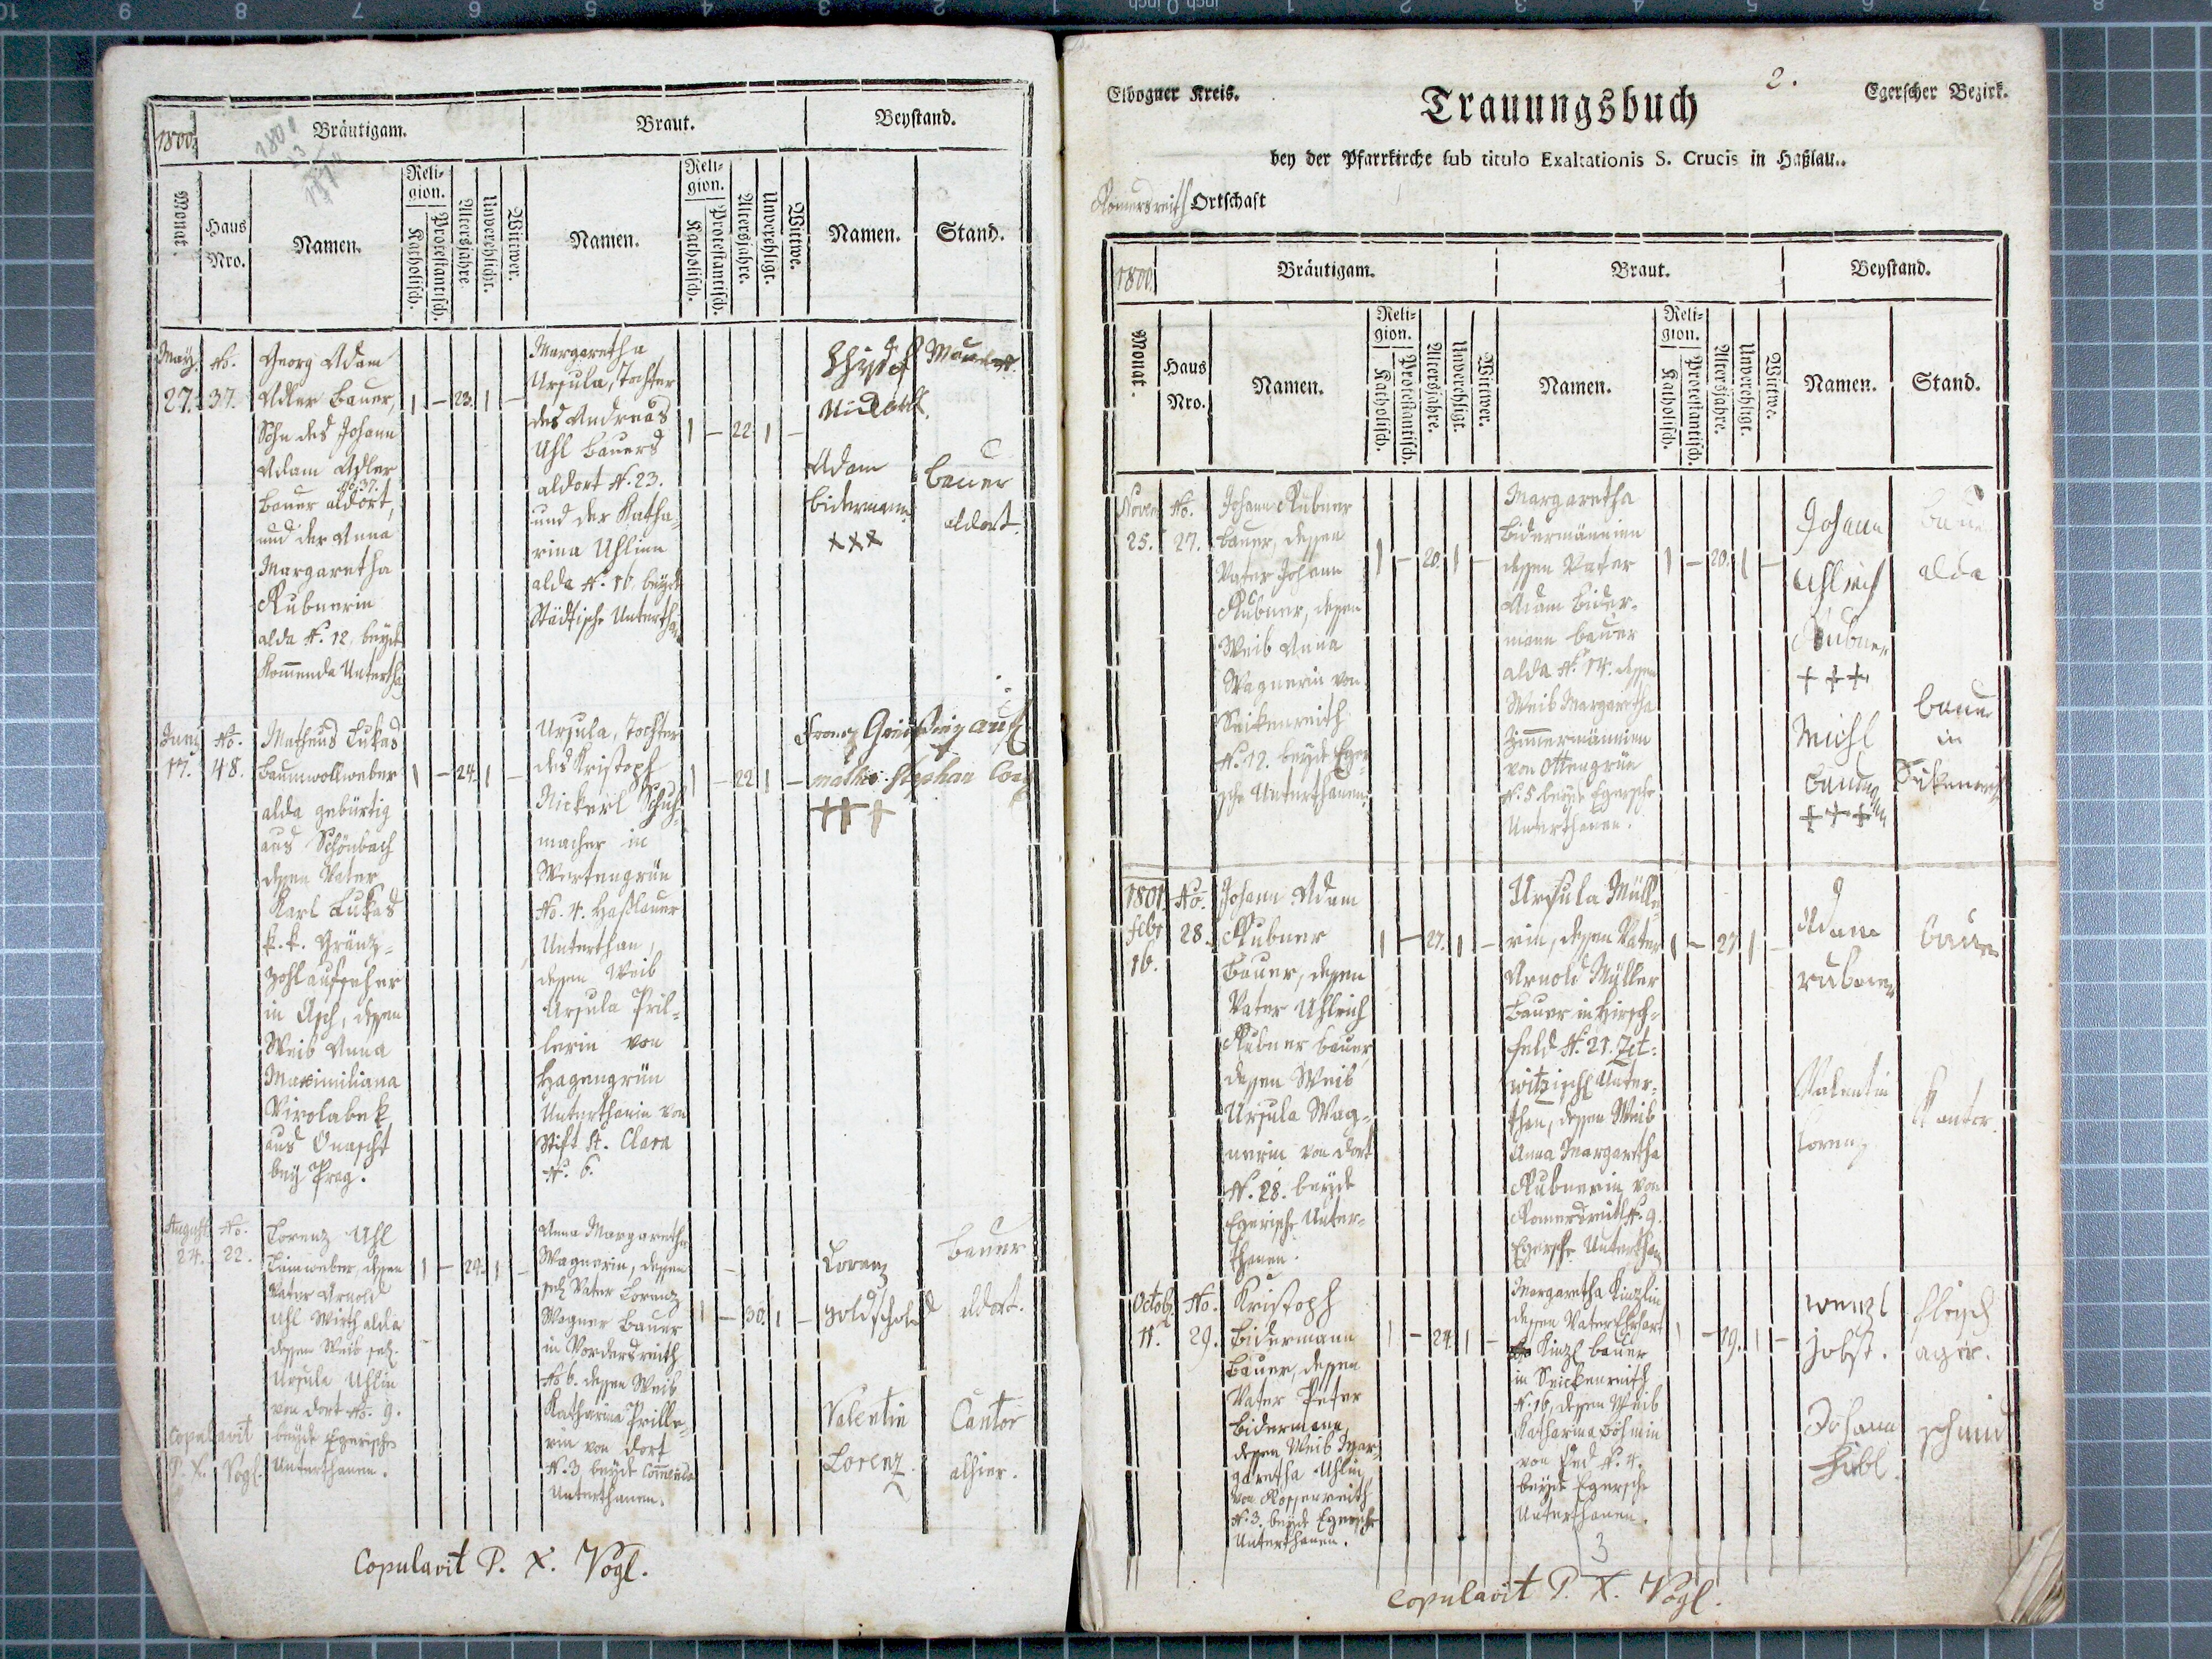 1800.
Bräutigam.
Braut.
Beystand.
Monat
Haus Nro.
Namen.
Religion.
Katholisch.
Protestantisch.
Altersjahre.
Unverehligt.
Wittwer.
Namen.
Religion.
Katholisch.
Protestantisch.
Altersjahre.
Unverehligt.
Wittwe.
Namen.
Stand.
May 27.
No. 37.
Georg Adam
Adler Bauer,
Sohn des Johann
Adam Adler
No. 37.
Bauer aldort,
und der Anna
Margaretha
Rubnerin
alda N. 12. beyde
Kommenda Untertha
1 — 23. 1 —
Margaretha
Ursula, Tochter
des Andreas
Uhl Bauers
aldort N. 23.
und der Katha-
rina Uhlinn
alda N. 16. beyde
Städtische Unterthan
1 — 22 1 —
Adam
Bidermann
xxx
Bauer
aldort.
Juny 17.
No. 48.
Matheus Lukas
Baumwollweber
alda gebürtig
aus Schönbach
dessen Vater
Karl Lukas
k. k. Gränz-
zohlaufseher
in Asch, dessen
Weib Anna
Maximiliana
aus
bey Prag.
1 — 24. 1 —
Ursula, Tochter
des Kristoph
Nickerl Schuh-
macher in
No. 4. Haßlauer
Unterthan,
dessen Weib
Ursula Pril-
lerin von
Hagengrün
Unterthanin von
Stift St. Clara
N. 6.
1 — 22 1 —
Franz
Stephan
+++
August 24.
No. 22.
Lorenz Uhl
Leinweber, dessen
Vater Arnold
Uhl Wirth alda
dessen Weib sel.
Ursula Uhlin
von dort No. 9.
beyde Egerische
Unterthanen.
Copulavit
P. X. Vogl.
1 — 24. 1 —
Anna Margaretha
Wagnerin, dessen
sel. Vater Lorenz
Wagner Bauer
in Vordersreith
No 6. dessen Weib
Katharina Prille-
rin von dort
N. 3. beyde
Unterthanen.
1 — 30. 1 —
Lorenz
Bauer
aldort.
Valentin
Lorenz.
Cantor
alhier.
Copulavit P. X. Vogl.
2.
Elbogner Kreis.
Trauungsbuch
Egerscher Bezirk.
bey der Pfarrkirche sub titulo Exaltationis S. Crucis in Haßlau..
Romersreith Ortschaft
1800.
Bräutigam.
Braut.
Beystand.
Monat.
Haus Nro.
Namen.
Religion.
Katholisch.
Protestantisch.
Altersjahre.
Unverehligt.
Wittwer.
Namen.
Religion.
Katholisch.
Protestantisch.
Altersjahre.
Unverehligt.
Wittwe.
Namen.
Stand.
Novem 25.
No. 27.
Johann Rubner
Bauer, dessen
Vater Johann
Rubner, dessen
Weib Anna
Wagnerin von
Seickenreith
N. 12. beyde Eger-
sche Unterthanen.
1 — 20. 1 —
Margaretha
Bidermännin
dessen Vater
Adam Bider-
mann Bauer
alda N. 14. dessen
Weib Margaretha
Zimmermännin
von Ottengrün
N. 5 beyde Egersche
Unterthanen.
1 — 20. 1 —
Johann
Uhlrich
Rubner
+++
Bauer
alda
Michl
+++
Bauer
in
1801. Febr 16.
No. 28.
Johann Adam
Rubner
Bauer, dessen
Vater Uhlrich
Rubner Bauer,
dessen Weib
Ursula Wag-
nerin von dort
N. 28. beyde
Egerische Unter-
thanen.
1 — 27. 1 —
Ursula Mülle-
rin, dessen Vater
Arnold Müller
Bauer in Hirsch-
feld N. 21. Zet-
witzischl Unter-
than, dessen Weib
Anna Margaretha
Rubnerin von
Romersreith N. 9.
Egersche Unterthan
1 — 27 1 —
Adam
rubner
Bauer
Valentin
Lorenz
Kantor.
Octob. 11.
No. 29.
Kristoph
Bidermann
Bauer, dessen
Vater Peter
Bidermann
dessen Weib Mar-
garetha Uhlin
von Rossenreith
N. 3. beyde Egersche
Unterthanen.
1 — 24. 1 —
Margaretha Künzlin
dessen Vater Erhart
Künzl Bauer
in Seickenreith
N. 16, dessen Weib
Katharina Böhmin
von N. 4.
beyde Egersche
Unterthanen.
1 — 19. 1 —
wenzl
Jobst.
Johann
Hübl.
schmid
3
Copulavit P. X. Vogl.